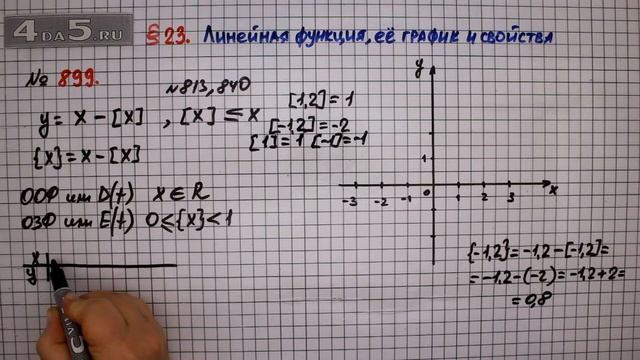 4DA5.RU
§23. Линейная функция, её график и свойства
№ 899.
№813, 840
y = x - [x] , [x] ≤ x
{x} = x - [x]
[1,2] = 1
[-1,2] = -2
[1] = 1 [-1] = -1
ООФ или D(f) x ∈ R
ОЗФ или E(f) 0 ≤ {x} < 1
x
y
y
1
-3 -2 -1 0 1 2 3 x
{-1,2} = -1,2 - [-1,2] =
= -1,2 - (-2) = -1,2 + 2 =
= 0,8